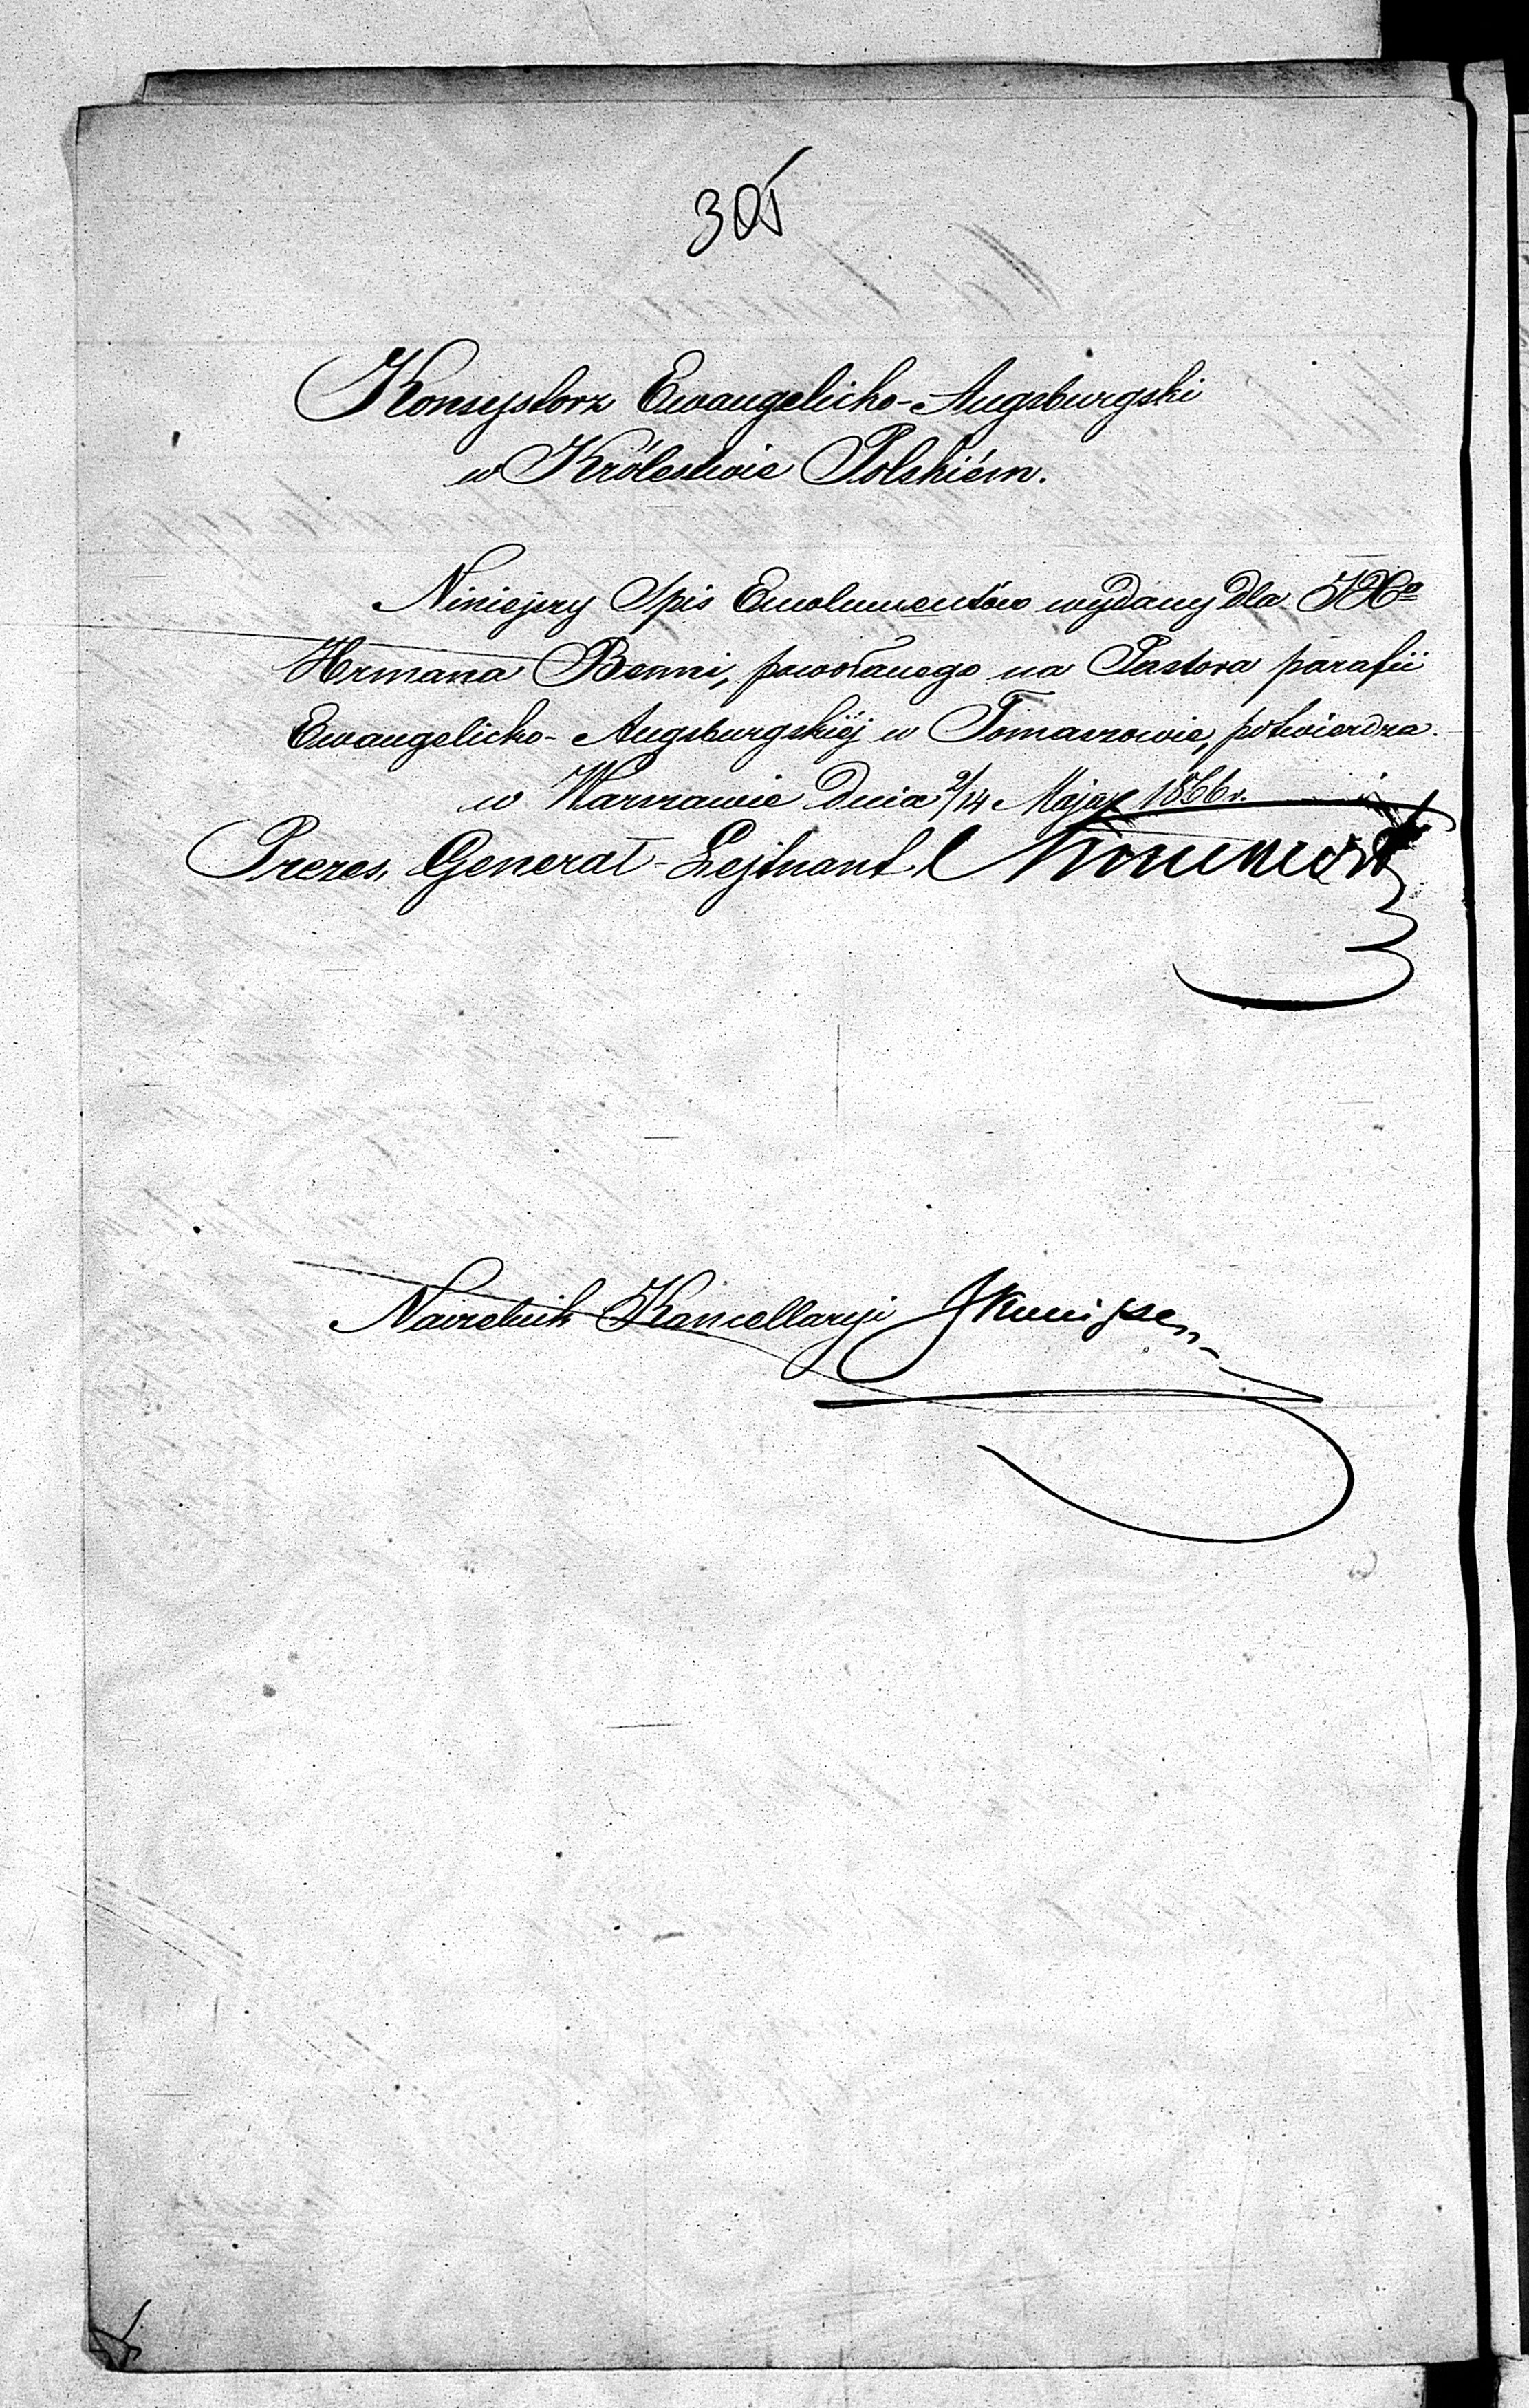 305
Konsystorz Ewangelicko-Augsburgski
w Królestwie Polskiém.
Niniejszy Spis Emolumentów wydany dla JXa
Hrmana Benni, powołanego na Pastora parafii
Ewangelicko-Augsburgskiéj w Tomaszowie, potwierdza.
w Warszawie dnia 2/14 Maja 1866 r.
Prezes, Generał-Lejtnant
Naczelnik Kancellaryi